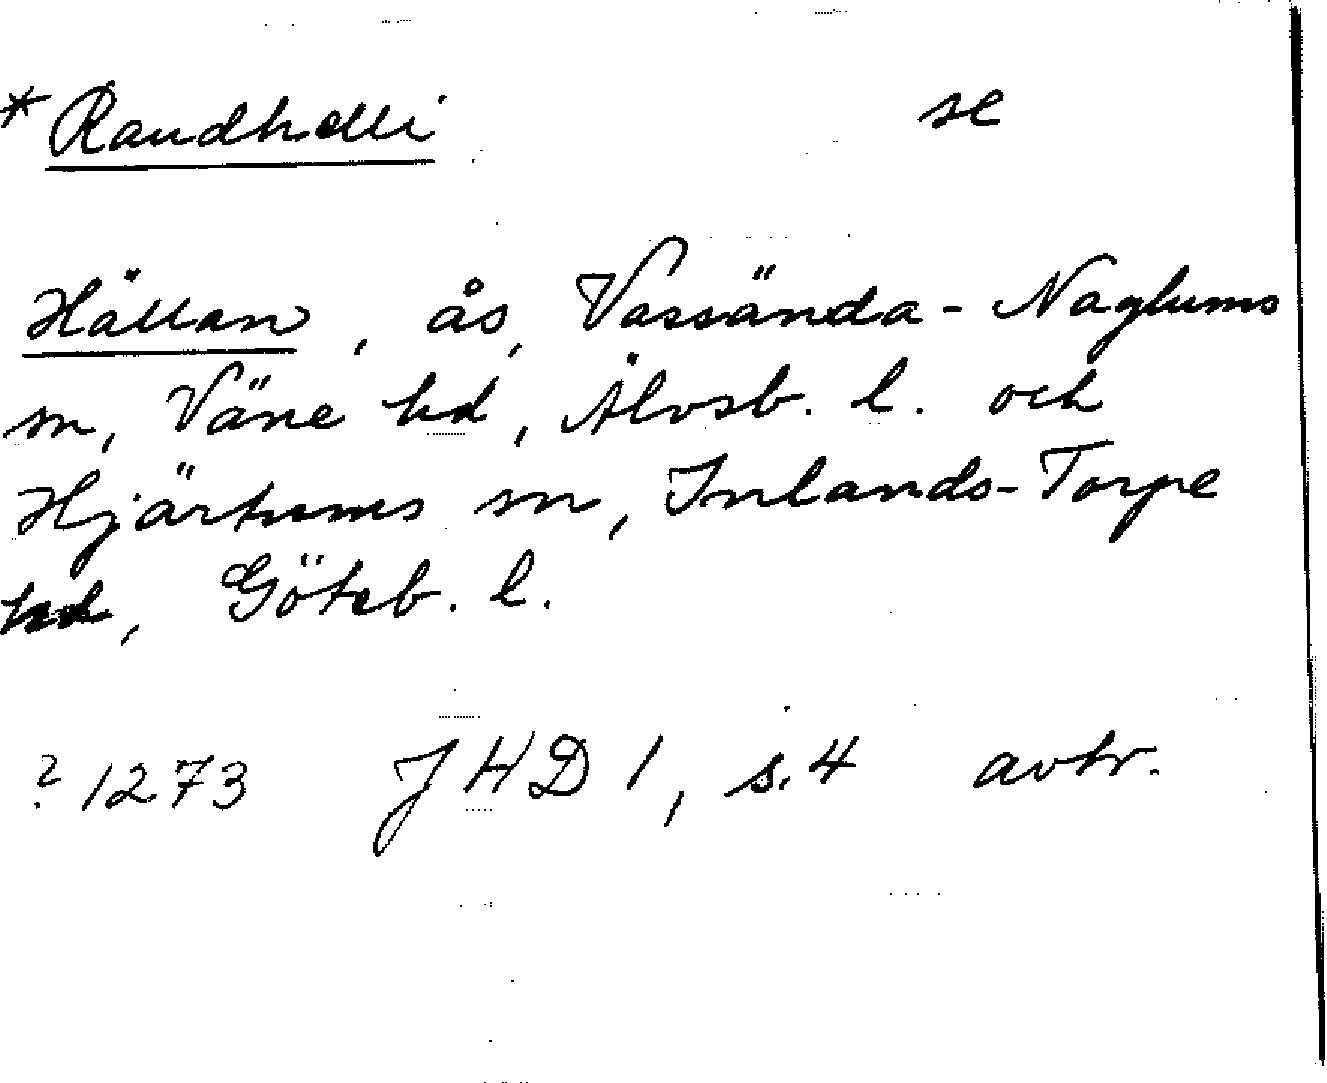 * Raudhelli se
Hällan, ås, Vassända-Naglums
sn, Väne hd, Älvsb. l. och
Hjärtums sn, Inlands-Torpe
hd, Göteb. l.
? 1273 JHD 1, s. 4 avtr.